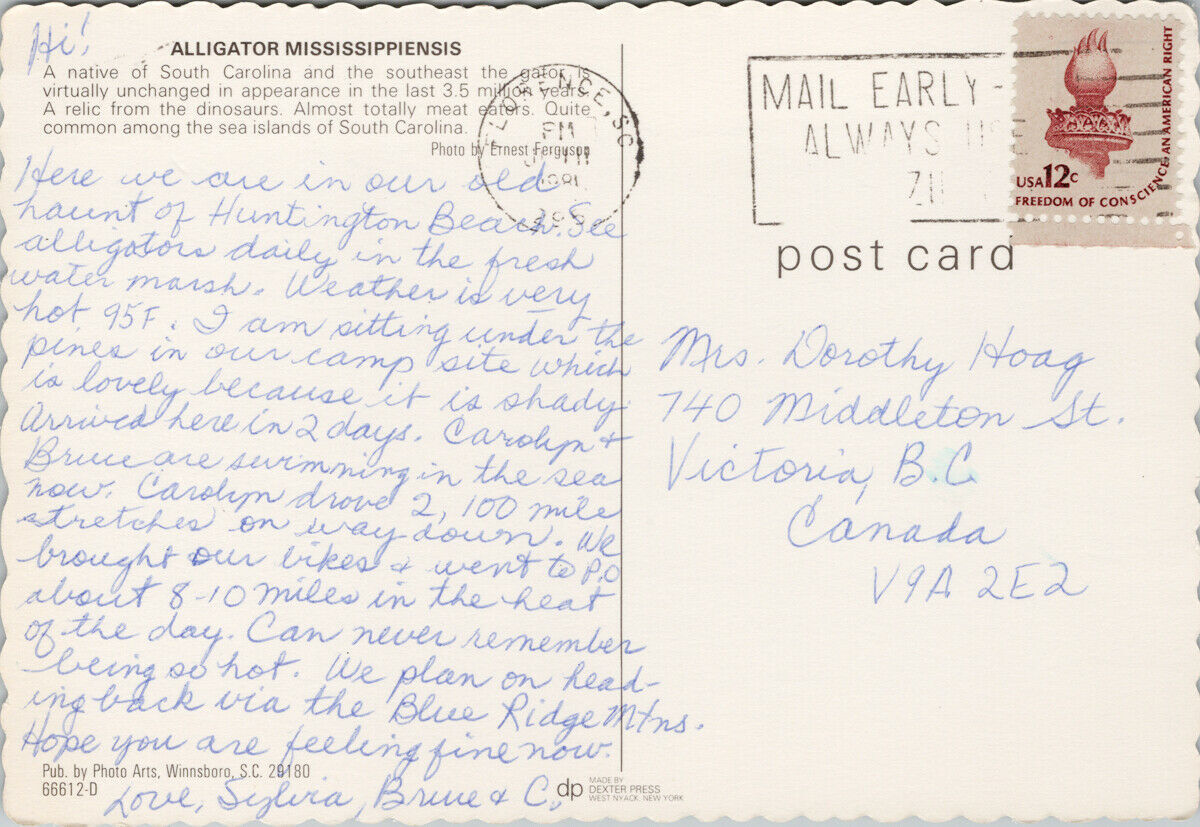 Hi!
ALLIGATOR MISSISSIPPIENSIS
A native of South Carolina and the southeast the gator is
virtually unchanged in appearance in the last 3.5 million years.
A relic from the dinosaurs. Almost totally meat eaters. Quite
common among the sea islands of South Carolina.
Photo by Ernest Ferguson
Here we are in our old
haunt of Huntington Beach. See
alligators daily in the fresh
water marsh. Weather is very
hot 95F. I am sitting under the
pines in our camp site which
is lovely because it is shady.
Arrived here in 2 days. Carolyn &
Bruce are swimming in the sea
now. Carolyn drove 2, 100 mile
stretches on way down. We
brought our bikes & went to P.O
about 8-10 miles in the heat
of the day. Can never remember
being so hot. We plan on head-
ing back via the Blue Ridge Mtns.
Hope you are feeling fine now.
Love, Sylvia, Bruce & C.
Pub. by Photo Arts, Winnsboro, S.C. 29180
66612-D
dp
MADE BY
DEXTER PRESS
WEST NYACK, NEW YORK
FLORENCE, SC
PM
1981
MAIL EARLY -
ALWAYS USE
USA 12c
FREEDOM OF CONSCIENCE, AN AMERICAN RIGHT
post card
Mrs. Dorothy Hoag
740 Middleton St.
Victoria, B.C.
Canada
V9A 2E2